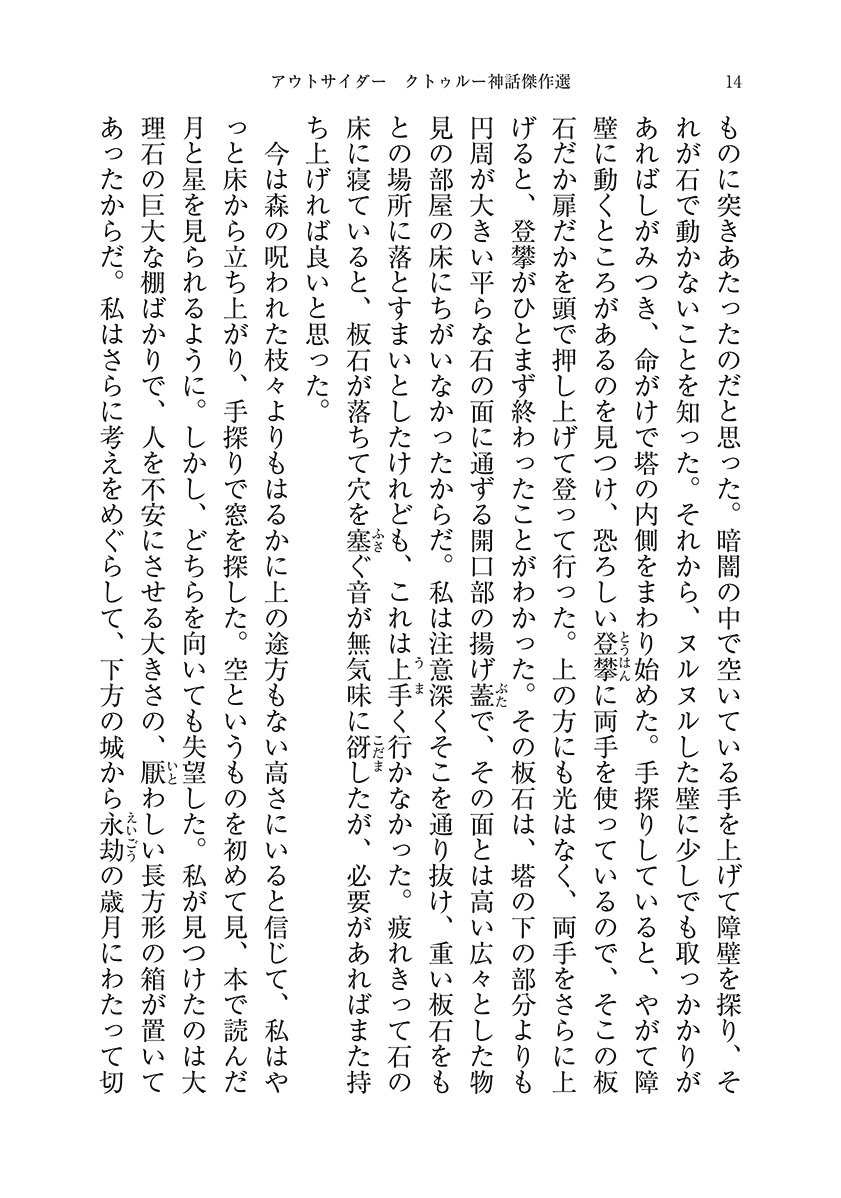 アウトサイダー　クトゥルー神話傑作選
14
ものに突きあたったのだと思った。暗闇の中で空いている手を上げて障壁を探り、そ
れが石で動かないことを知った。それから、ヌルヌルした壁に少しでも取っかかりが
あればしがみつき、命がけで塔の内側をまわり始めた。手探りしていると、やがて障
壁に動くところがあるのを見つけ、恐ろしい登攀に両手を使っているので、そこの板
とうはん
石だか扉だかを頭で押し上げて登って行った。上の方にも光はなく、両手をさらに上
げると、登攀がひとまず終わったことがわかった。その板石は、塔の下の部分よりも
円周が大きい平らな石の面に通ずる開口部の揚げ蓋で、その面とは高い広々とした物
ぶた
見の部屋の床にちがいなかったからだ。私は注意深くそこを通り抜け、重い板石をも
との場所に落とすまいとしたけれども、これは上手く行かなかった。疲れきって石の
うま
床に寝ていると、板石が落ちて穴を塞ぐ音が無気味に谺したが、必要があればまた持
ふさ
こだま
ち上げれば良いと思った。
　今は森の呪われた枝々よりもはるかに上の途方もない高さにいると信じて、私はや
っと床から立ち上がり、手探りで窓を探した。空というものを初めて見、本で読んだ
月と星を見られるように。しかし、どちらを向いても失望した。私が見つけたのは大
理石の巨大な棚ばかりで、人を不安にさせる大きさの、厭わしい長方形の箱が置いて
いと
あったからだ。私はさらに考えをめぐらして、下方の城から永劫の歳月にわたって切
えいごう